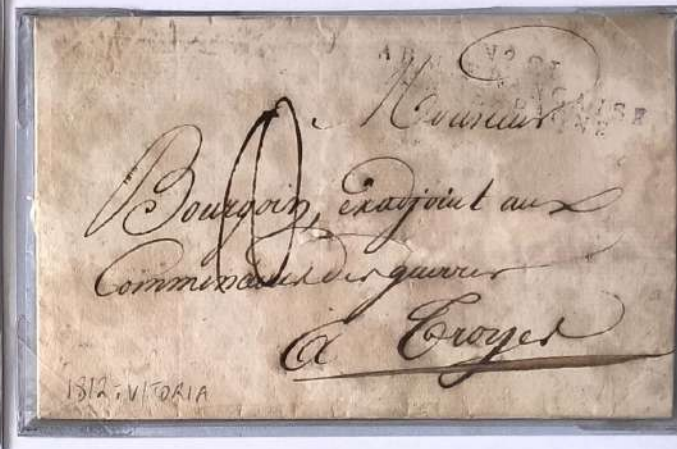 Nº 21
ARM FRANÇAISE
Monsieur
Bourgoin, exadjoint aux
Commissaires des guerres
à Troyes
1812 : VITORIA